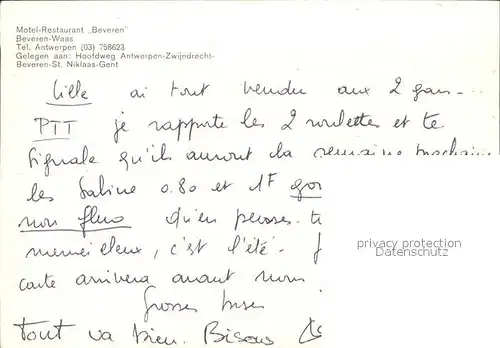 Motel-Restaurant „Beveren"
Beveren-Waas
Tel. Antwerpen (03) 758623
Gelegen aan: Hoofdweg Antwerpen-Zwijndrecht-
Beveren-St. Niklaas-Gent
Lille ai tout vendu aux 2 gars -
PTT je rapporte les 2 roulettes et te
signale qu'ils auront la semaine prochaine
les Sabine 0.80 et 1F gom
non fluo qu'en penses-tu
merveilleux, c'est l'été.
carte arrivera avant nous
Grosses bises
Tout va bien. Bisous
privacy protection
Datenschutz